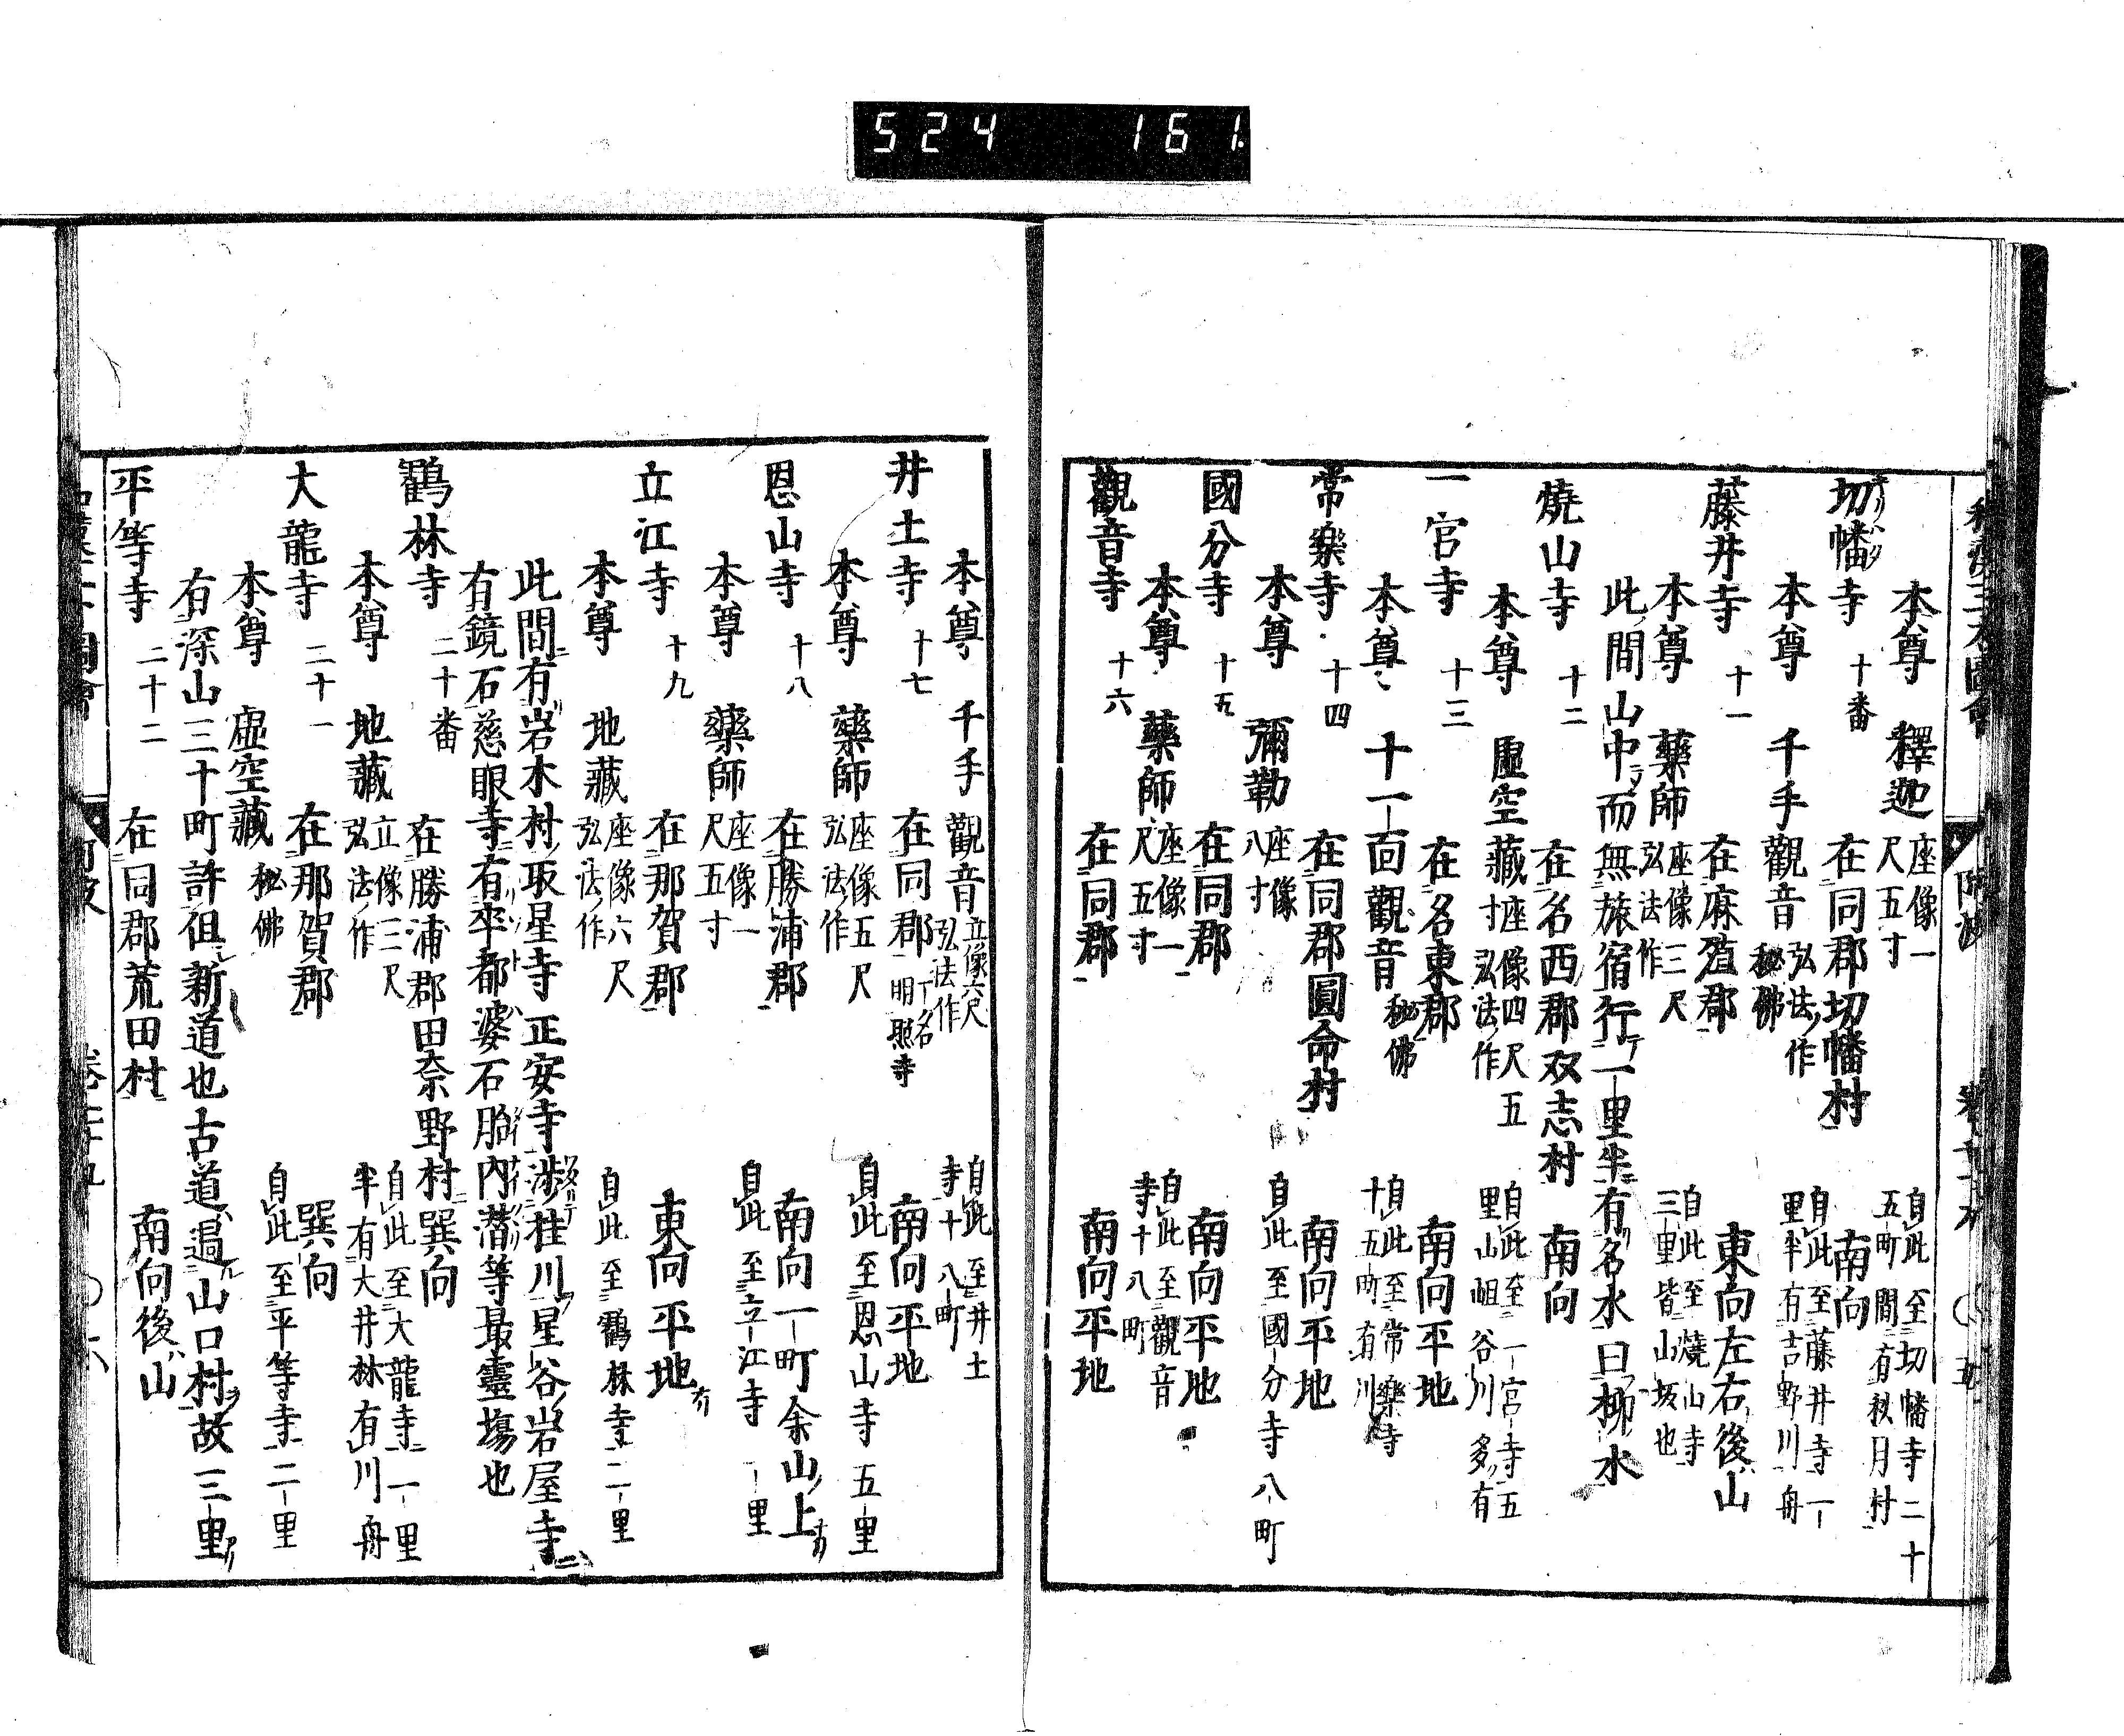 524 161
本尊 釋迦 座像一尺五寸 自此至切幡寺二十五町間有秋月村
切幡寺 十番 在同郡切幡村 南向
本尊 千手觀音 弘法ノ作秘佛 自此至藤井寺一里半有吉野川舟
藤井寺 十一 在麻殖郡 東向左右後山
本尊 藥師 座像三尺弘法作 自此至燒山寺三里皆山坂也
此間山中而無旅宿行一里半有名水曰柳水
燒山寺 十二 在名西郡双志村 南向
本尊 虛空藏 座像四尺五寸弘法ノ作 自此至一宮寺五里山岨谷川多有
一宮寺 十三 在名東郡 南向平地
本尊 十一面觀音 秘佛 自此至常樂寺十五町有川
常樂寺 十四 在同郡圓命村 南向平地
本尊 彌勒 座像八寸 自此至國分寺八町
國分寺 十五 在同郡 南向平地
本尊 藥師 座像一尺五寸 自此至觀音寺十八町
觀音寺 十六 在同郡 南向平地
本尊 千手觀音 立像六尺弘法作 自此至井土寺十八町
井土寺 十七 在同郡 一名明照寺 南向平地
本尊 藥師 座像五尺弘法作 自此至恩山寺五里
恩山寺 十八 在勝浦郡 南向一町余山ノ上
本尊 藥師 座像一尺五寸 自此至立江寺一里
立江寺 十九 在那賀郡 東向平地
本尊 地藏 座像六尺弘法作 自此至鶴林寺二里
此間有岩水村取星寺正安寺渉桂川星谷岩屋寺
有鏡石慈眼寺有卒都婆石胎内潜等最靈場也
鶴林寺 二十番 在勝浦郡田奈野村 巽向
本尊 地藏 立像三尺弘法作 自此至大龍寺一里半有大井林有川舟
大龍寺 二十一 在那賀郡 巽向
本尊 虛空藏 秘佛 自此至平等寺二里
有深山三十町許但新道也古道過山口村故三里
平等寺 二十二 在同郡荒田村 南向後山